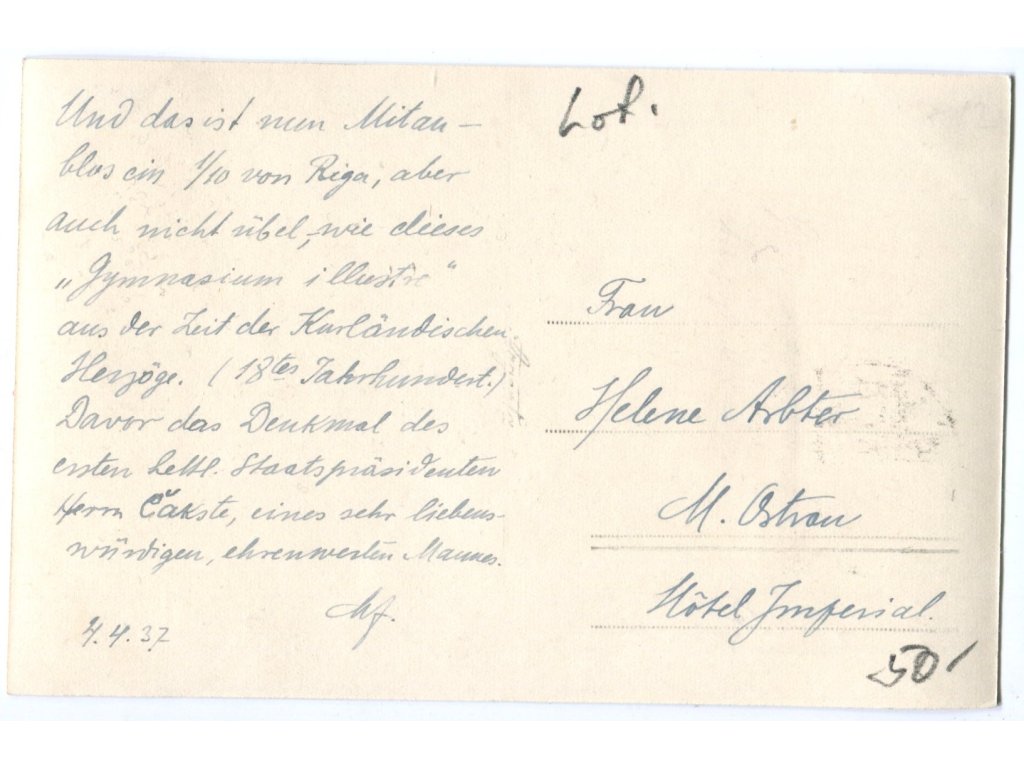 Und das ist nun Mitau –
blos ein 1/10 von Riga, aber
auch nicht übel, wie dieses
„Gymnasium illustre“
aus der Zeit der Kurländischen
Herzöge. (18tes Jahrhundert.)
Davor das Denkmal des
ersten lettl. Staatspräsidenten
Herrn Čakste, eines sehr liebens-
würdigen, ehrenwerten Mannes.
4.4.37
Lot.
Frau
Helene Arbter
M. Ostrau
Hôtel Imperial.
50